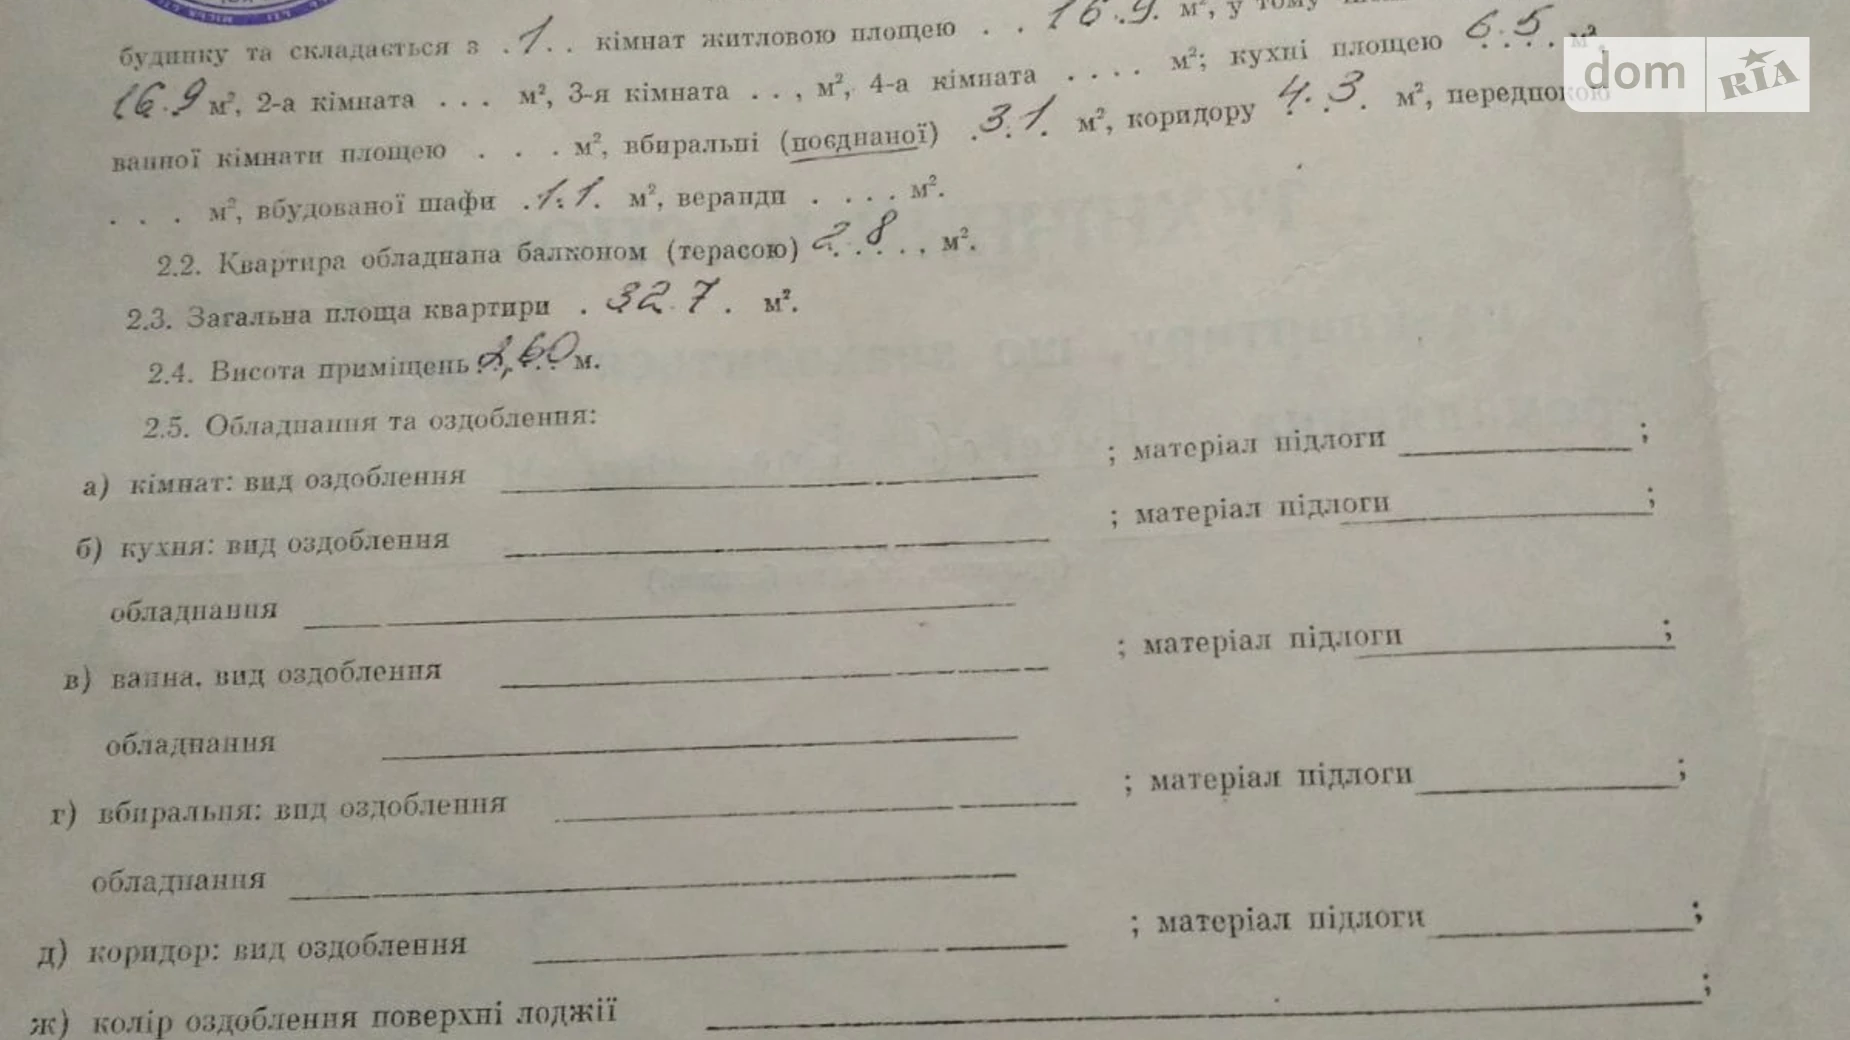 будинку та складається з . 1 . . кімнат житловою площею . . 16.9. м², у тому
16.9 м², 2-а кімната . . . м², 3-я кімната . . , м², 4-а кімната . . . . м²; кухні площею 6.5. м²,
ванної кімнати площею . . . м², вбиральні (поєднаної) .3.1. м², коридору 4.3. м², передпокою
. . . м², вбудованої шафи .1.1. м², веранди . . . . м².
2.2. Квартира обладнана балконом (терасою) 2.8 . . , м².
2.3. Загальна площа квартири . 32.7 . м².
2.4. Висота приміщень 2,60 м.
2.5. Обладнання та оздоблення:
а) кімнат: вид оздоблення ; матеріал підлоги ;
б) кухня: вид оздоблення ; матеріал підлоги ;
обладнання
в) ванна, вид оздоблення ; матеріал підлоги ;
обладнання
г) вбиральня: вид оздоблення ; матеріал підлоги ;
обладнання
д) коридор: вид оздоблення ; матеріал підлоги ;
ж) колір оздоблення поверхні лоджії ;
dom RIA